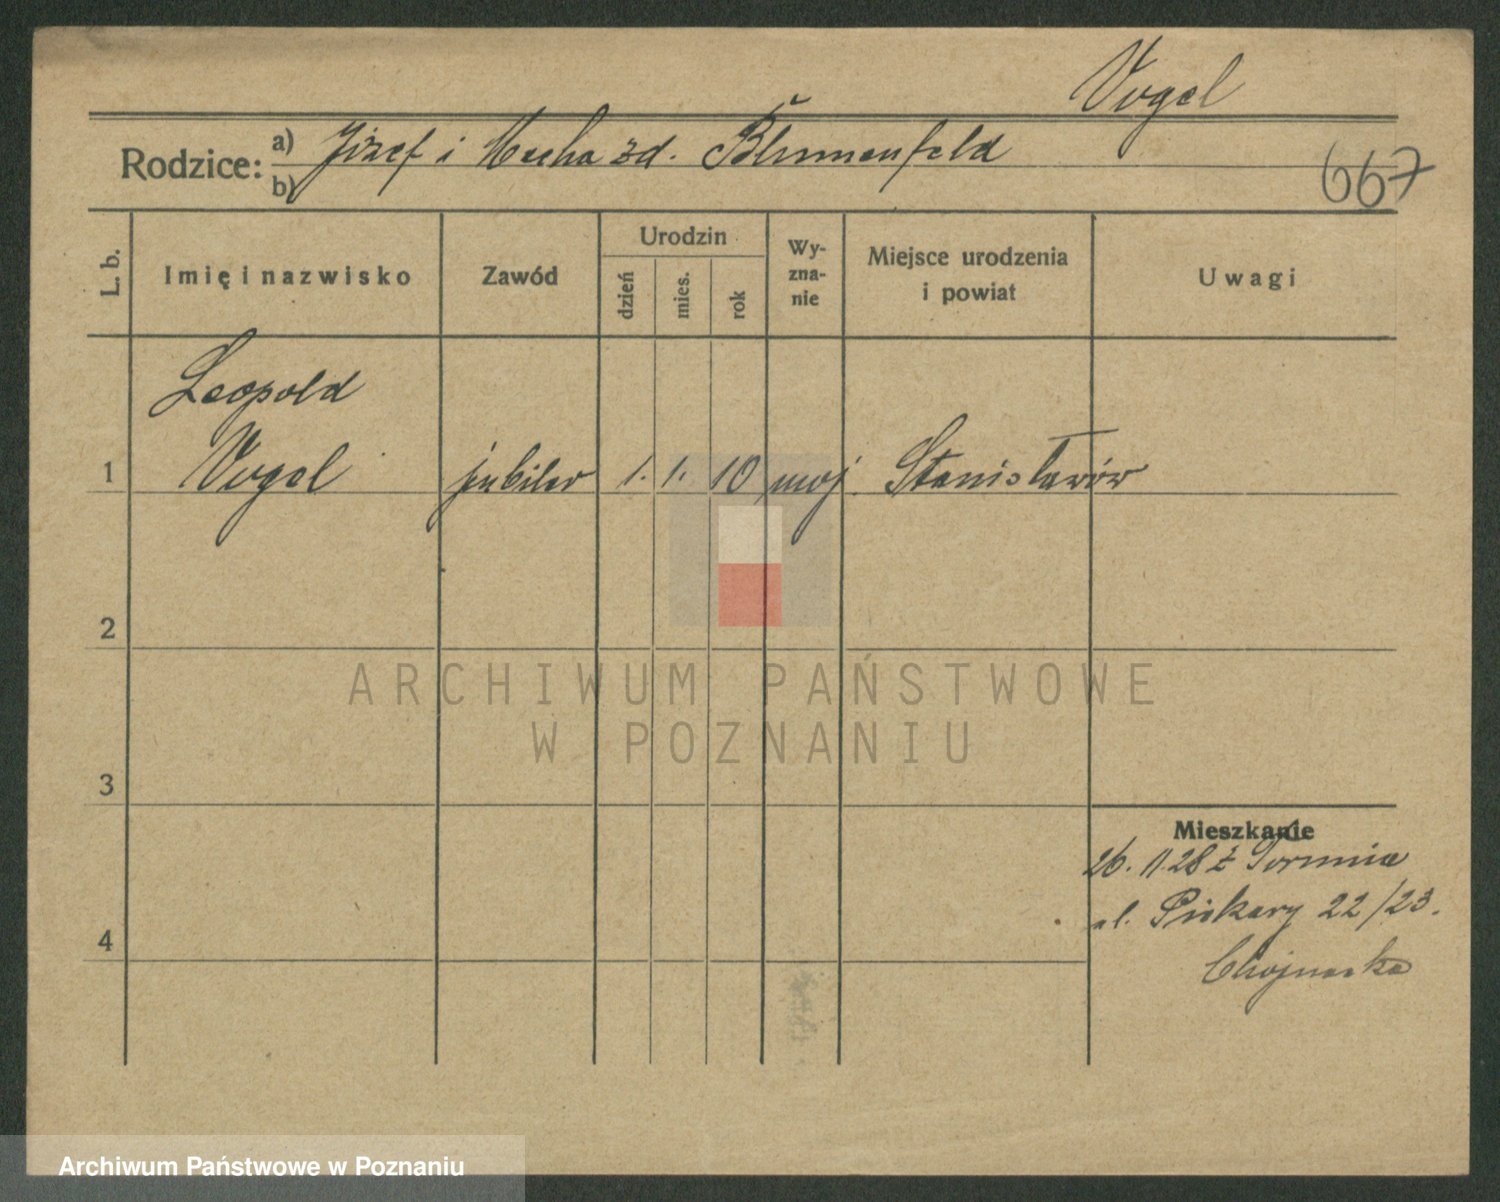 Vogel
Rodzice: a) Józef i Mecha zd. Blumenfeld
b)
667
L. b.
Imię i nazwisko
Zawód
Urodzin
dzień
mies.
rok
Wy-
zna-
nie
Miejsce urodzenia
i powiat
Uwagi
Leopold
1 Vogel jubiler 1. 1. 10 moj. Stanisławów
2
ARCHIWUM PAŃSTWOWE
W POZNANIU
3
Mieszkanie
26. 11. 28 z Torunia
ul. Piekary 22/23.
4
Chojnacka
Archiwum Państwowe w Poznaniu